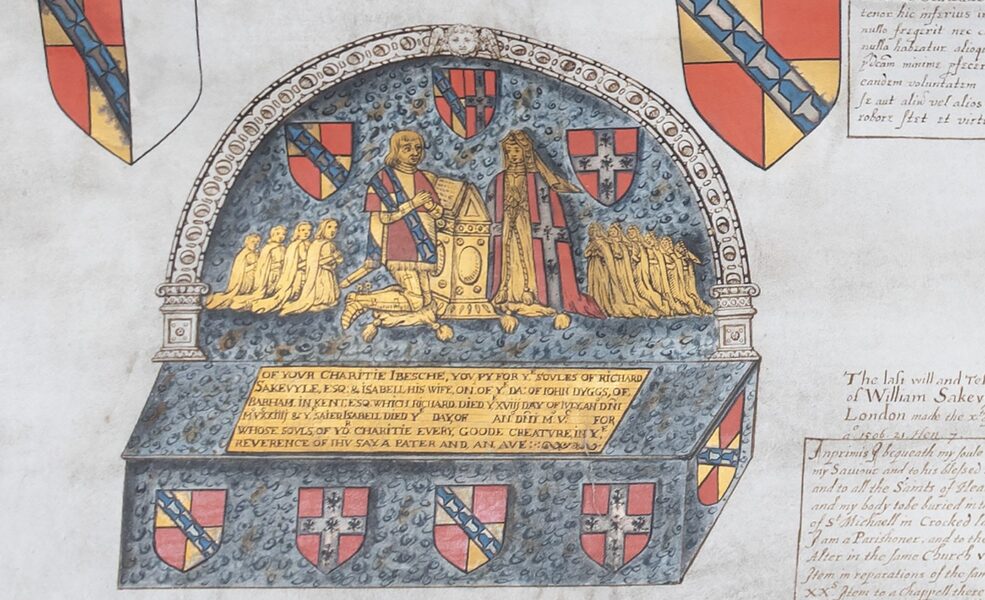 tenor hic inferius
nullo fregerit nec
nulla habeatur
minime
eandem voluntatem
se aut vel alios
robore stet et
OF YOUR CHARITIE I BESCHE, YOU PY FOR Yᴱ SOULES OF RICHARD
SAKEVYLE, ESQ. & ISABELL HIS WIFE, ON OF Yᴱ DA: OF IOHN DYGGS, OF
BARHAM IN KENT, ESQ. WHICH RICHARD DIED Yᴱ XVIIJ DAY OF IVLY, AN DNI
MVXXIIII & Yᴱ SAIED ISABELL DIED Yᴱ DAY OF AN° DNII M.Vᶜ FOR
WHOSE SOULS OF YOᴿ CHARITIE EVERY, GOODE CREATVRE IN Yᴱ
REVERENCE OF IHV SAY A PATER AND, AN, AVE
The last will and
of William
London made the
a° 1506. 21 Hen 7.
Inprimis I bequeath my soule
my Saviour and to his blessed
and to all the Saints of
and my body to be buried in
of Sᵗ Michaell in Crocked
I am a Parishoner, and to the
Alter in the same Church
Item in reparations of the
XXˢ Item to a Chappell